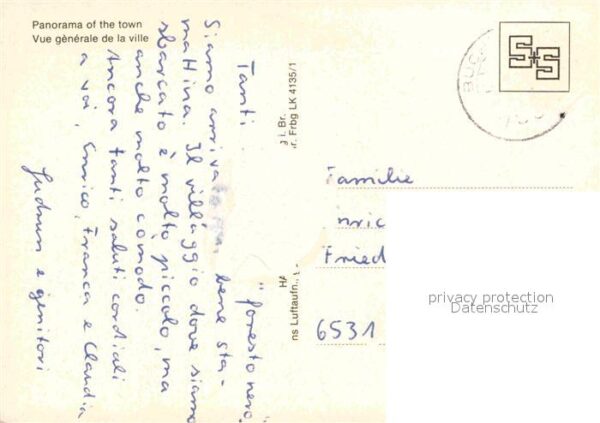 Panorama of the town
Vue générale de la ville
Tanti "foresto nero".
Siamo arriva bene sta-
mattina. Il villaggio dove siamo
sbarcato è molto piccolo, ma
anche molto comodo.
Ancora tanti saluti cordiali
a voi, Enrico, Franca e Claudia
Gudrun e genitori
i. Br.
r. Frbg LK 4135/1
ns Luftaufn.,
BUC
S+S
Familie
nric
Fried
6531
privacy protection
Datenschutz